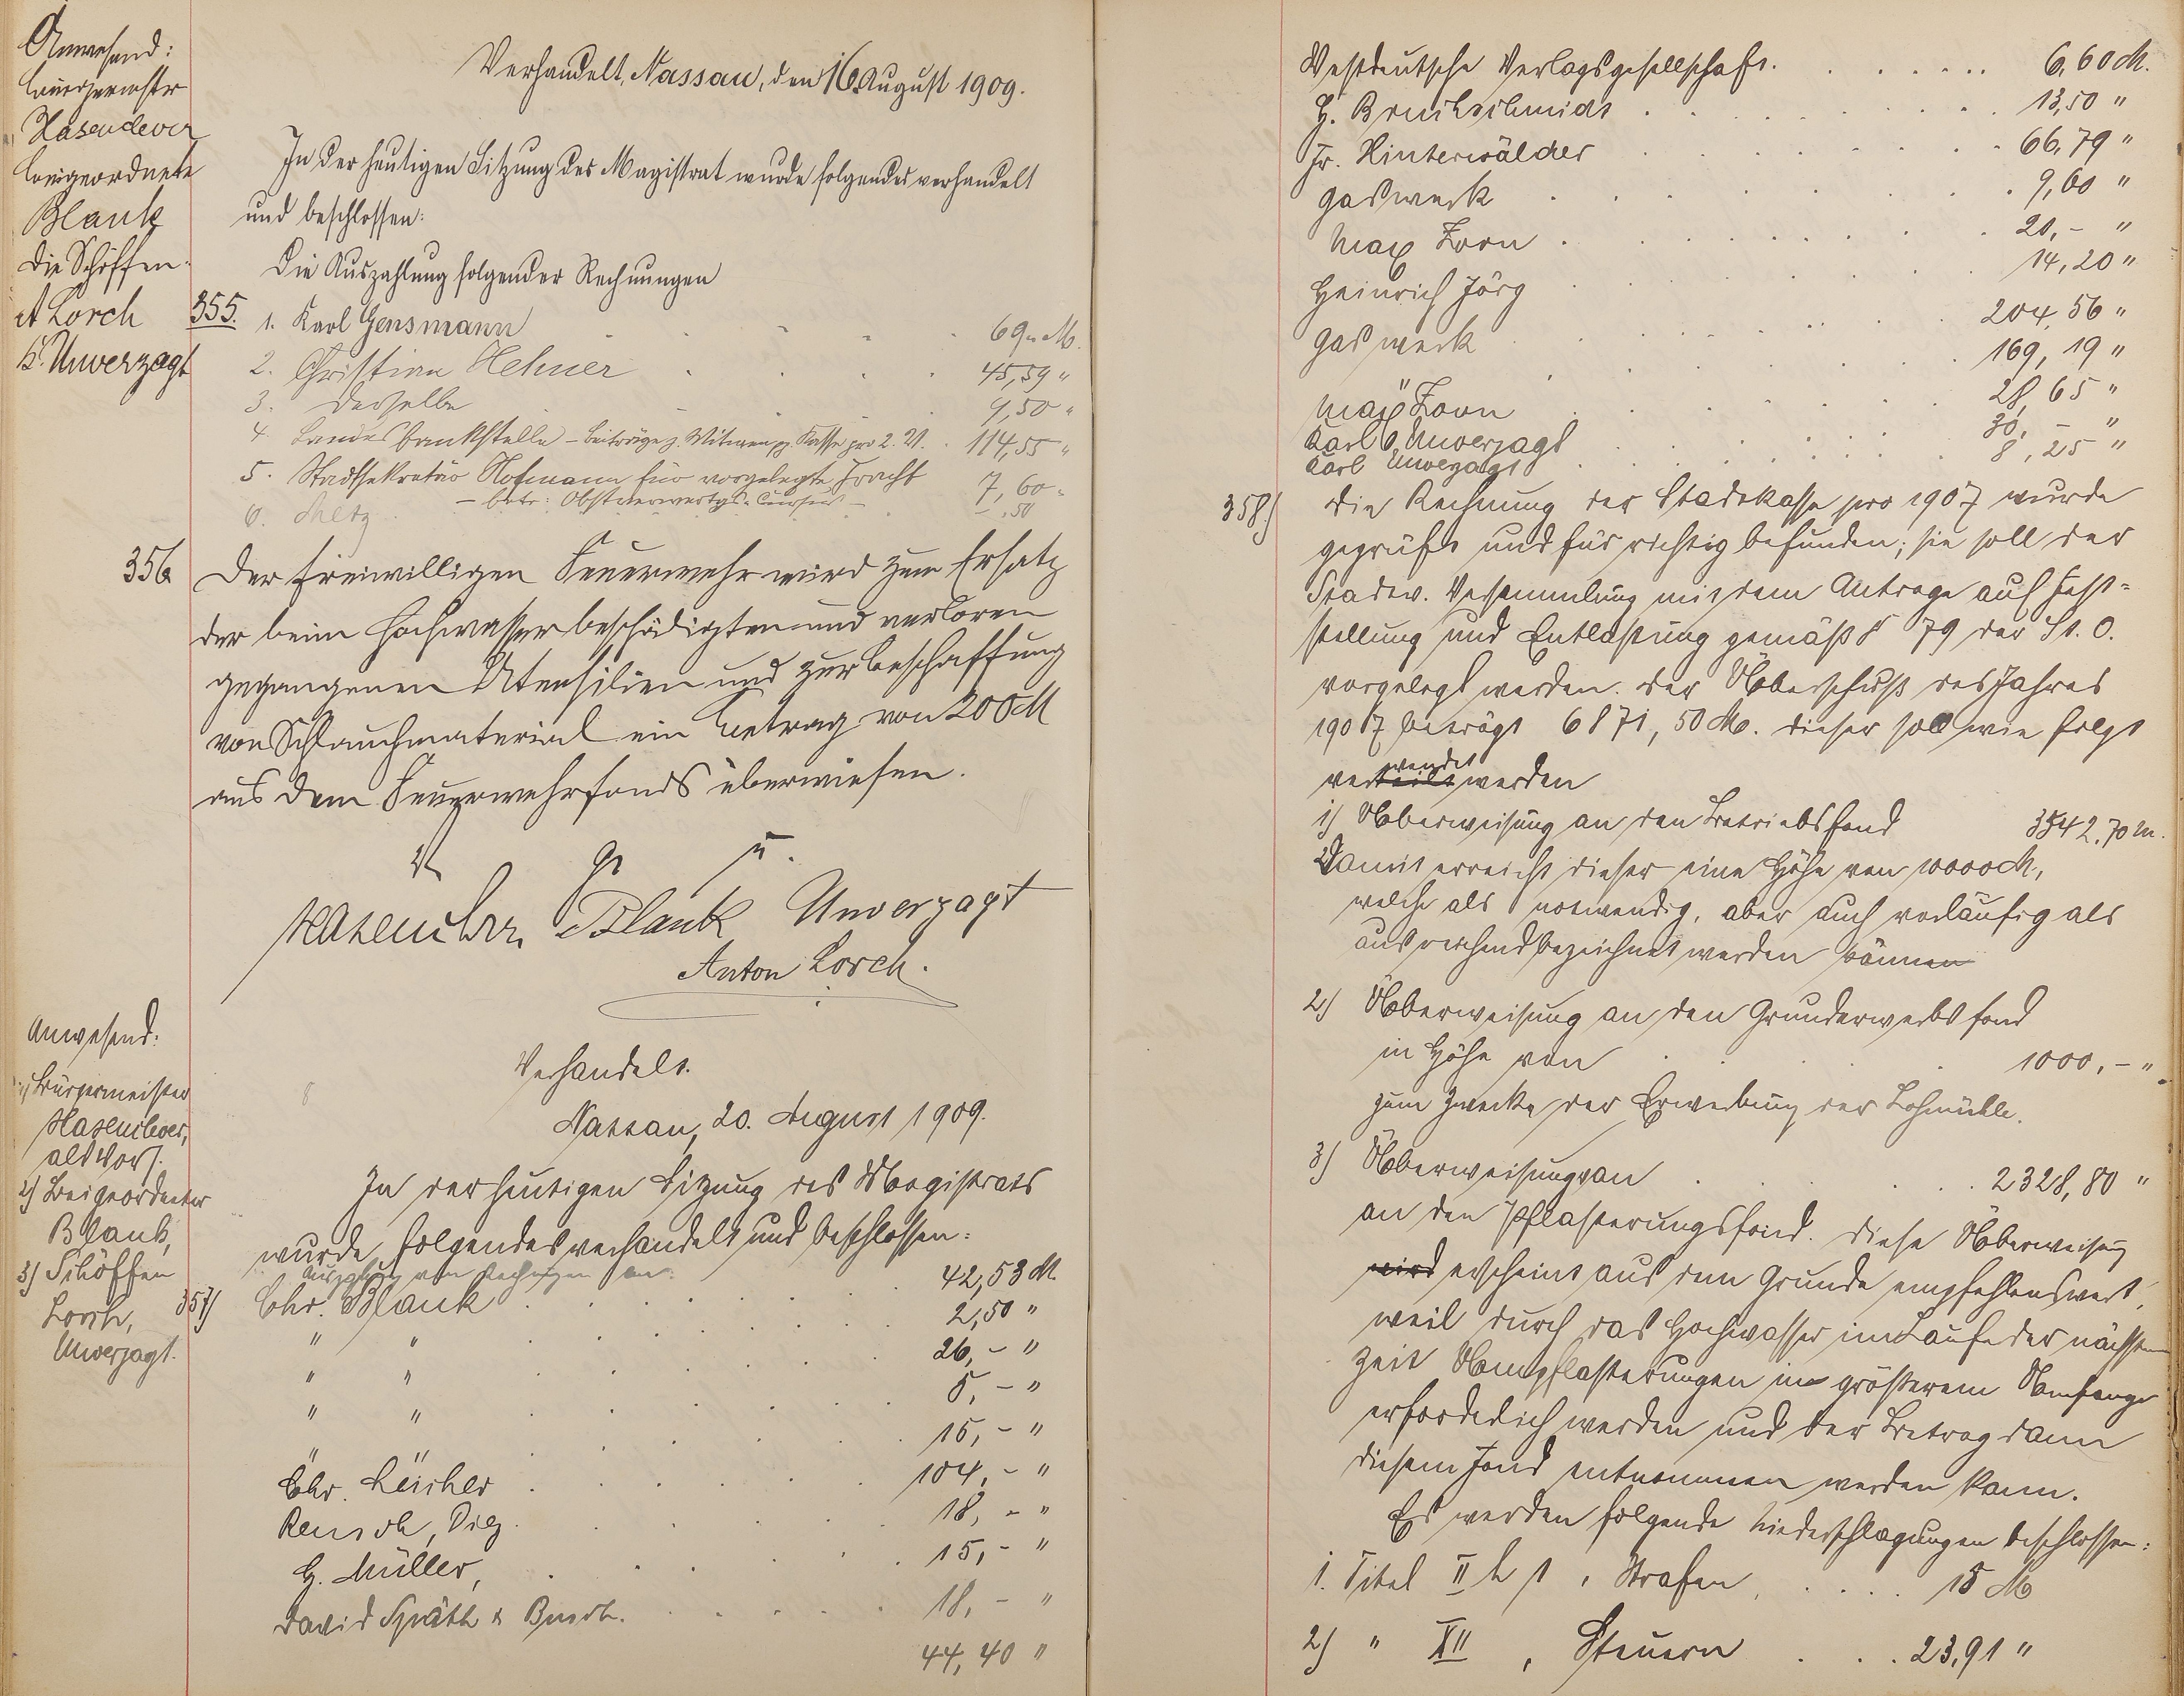 Anwesend:
Bürgermstr
Hasenclever
Beigeordneter
Blank
Die Schöffen:
A Lorch
K. Unverzagt
Verhandelt, Nassau, den 16. August 1909.
In der heutigen Sitzung des Magistrat wurde folgendes verhandelt
und beschlossen:
Die Auszahlung folgender Rechnungen
355. 1. Karl Gensmann 69,- M.
2. Christian Hehner 45,59 "
3. Derselbe 9,50 "
4. Landesbankstelle - Beiträge z. Witwen pp Kasse pro 2. V. 114,55 "
5. Stadtsekretär Hofmann für vorgelegte Fracht 7,60 "
- betr: Obstverwertgs. Cursus -
6. Metz -,50
356 Der freiwilligen Feuerwehr wird zum Ersatz
der beim Hochwasser beschädigten und verloren
gegangenen Utensilien und zur Beschaffung
von Schlauchmaterial ein Betrag von 200 M
aus dem Feuerwehrfonds überwiesen.
V. G. U.
Hasenclever Blank Unverzagt
Anton Lorch.
Anwesend:
1) Bürgermeister
Hasenclever,
als Vors.
2) Beigeordneter
Blank,
3) Schöffen
Lorch,
Unverzagt.
Verhandelt.
Nassau, 20. August 1909.
In der heutigen Sitzung des Magistrats
wurde folgendes verhandelt und beschlossen:
Auszahlung von Rechnungen an:
357) Chr. Blank 42,53 M.
" " 2,50 "
" " 26,- "
" " 5,- "
" " 15,- "
Chr. Löscher 104,- "
Rensch, Diez. 18,- "
H. Müller, 15,- "
David Späth & Busch. 18,- "
44,40 "
Westdeutsche Verlagsgesellschaft. 6,60 M.
H. Bruchschmidt 13,50 "
Fr. Hinterwälder 66,79 "
Gaswerk 9,60 "
Max Zorn 20,- "
Heinrich Jörg 14,20 "
Gaswerk 204,56 "
" 169,19 "
Max Zorn 28,65 "
Karl Unverzagt 30,- "
Karl Unverzagt 8,25 "
358.) Die Rechnung der Stadtkasse pro 1907 wurde
geprüft und für richtig befunden; sie soll der
Stadtv. Versammlung mit dem Antrage auf Fest-
stellung und Entlastung gemäß § 79 der St. O.
vorgelegt werden. Der Überschuß des Jahres
1907 beträgt 6871,50 M. Dieser soll wie folgt
verteilt wendet werden
1) Überweisung an den Betriebsfond 3542,70 M.
Damit erreicht dieser eine Höhe von 10000 M,
welche als notwendig, aber auch vorläufig als
ausreichend bezeichnet werden können
2) Überweisung an den Grunderwerbsfond
in Höhe von 1000,- "
zum Zwecke der Erwerbung der Lohmühle.
3) Überweisung von 2328,80 "
an den Pflasterungsfond. Diese Überweisung
wird erscheint aus dem Grunde empfehlenswert,
weil durch das Hochwasser im Laufe der nächsten
Zeit Umpflasterungen in größerem Umfange
erforderlich werden und der Betrag dann
diesem Fond entnommen werden kann.
Es werden folgende Niederschlagungen beschlossen:
1. Titel II b 1, Strafen, 15 M
2) " XII, Steuern 23,91 "